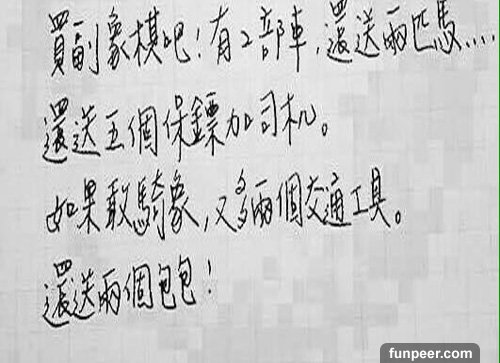 買副象棋吧!有2部車,還送兩匹馬....
還送五個保鏢加司机。
如果敢騎象,又多兩個交通工具。
還送兩個包包!
funpeer.com